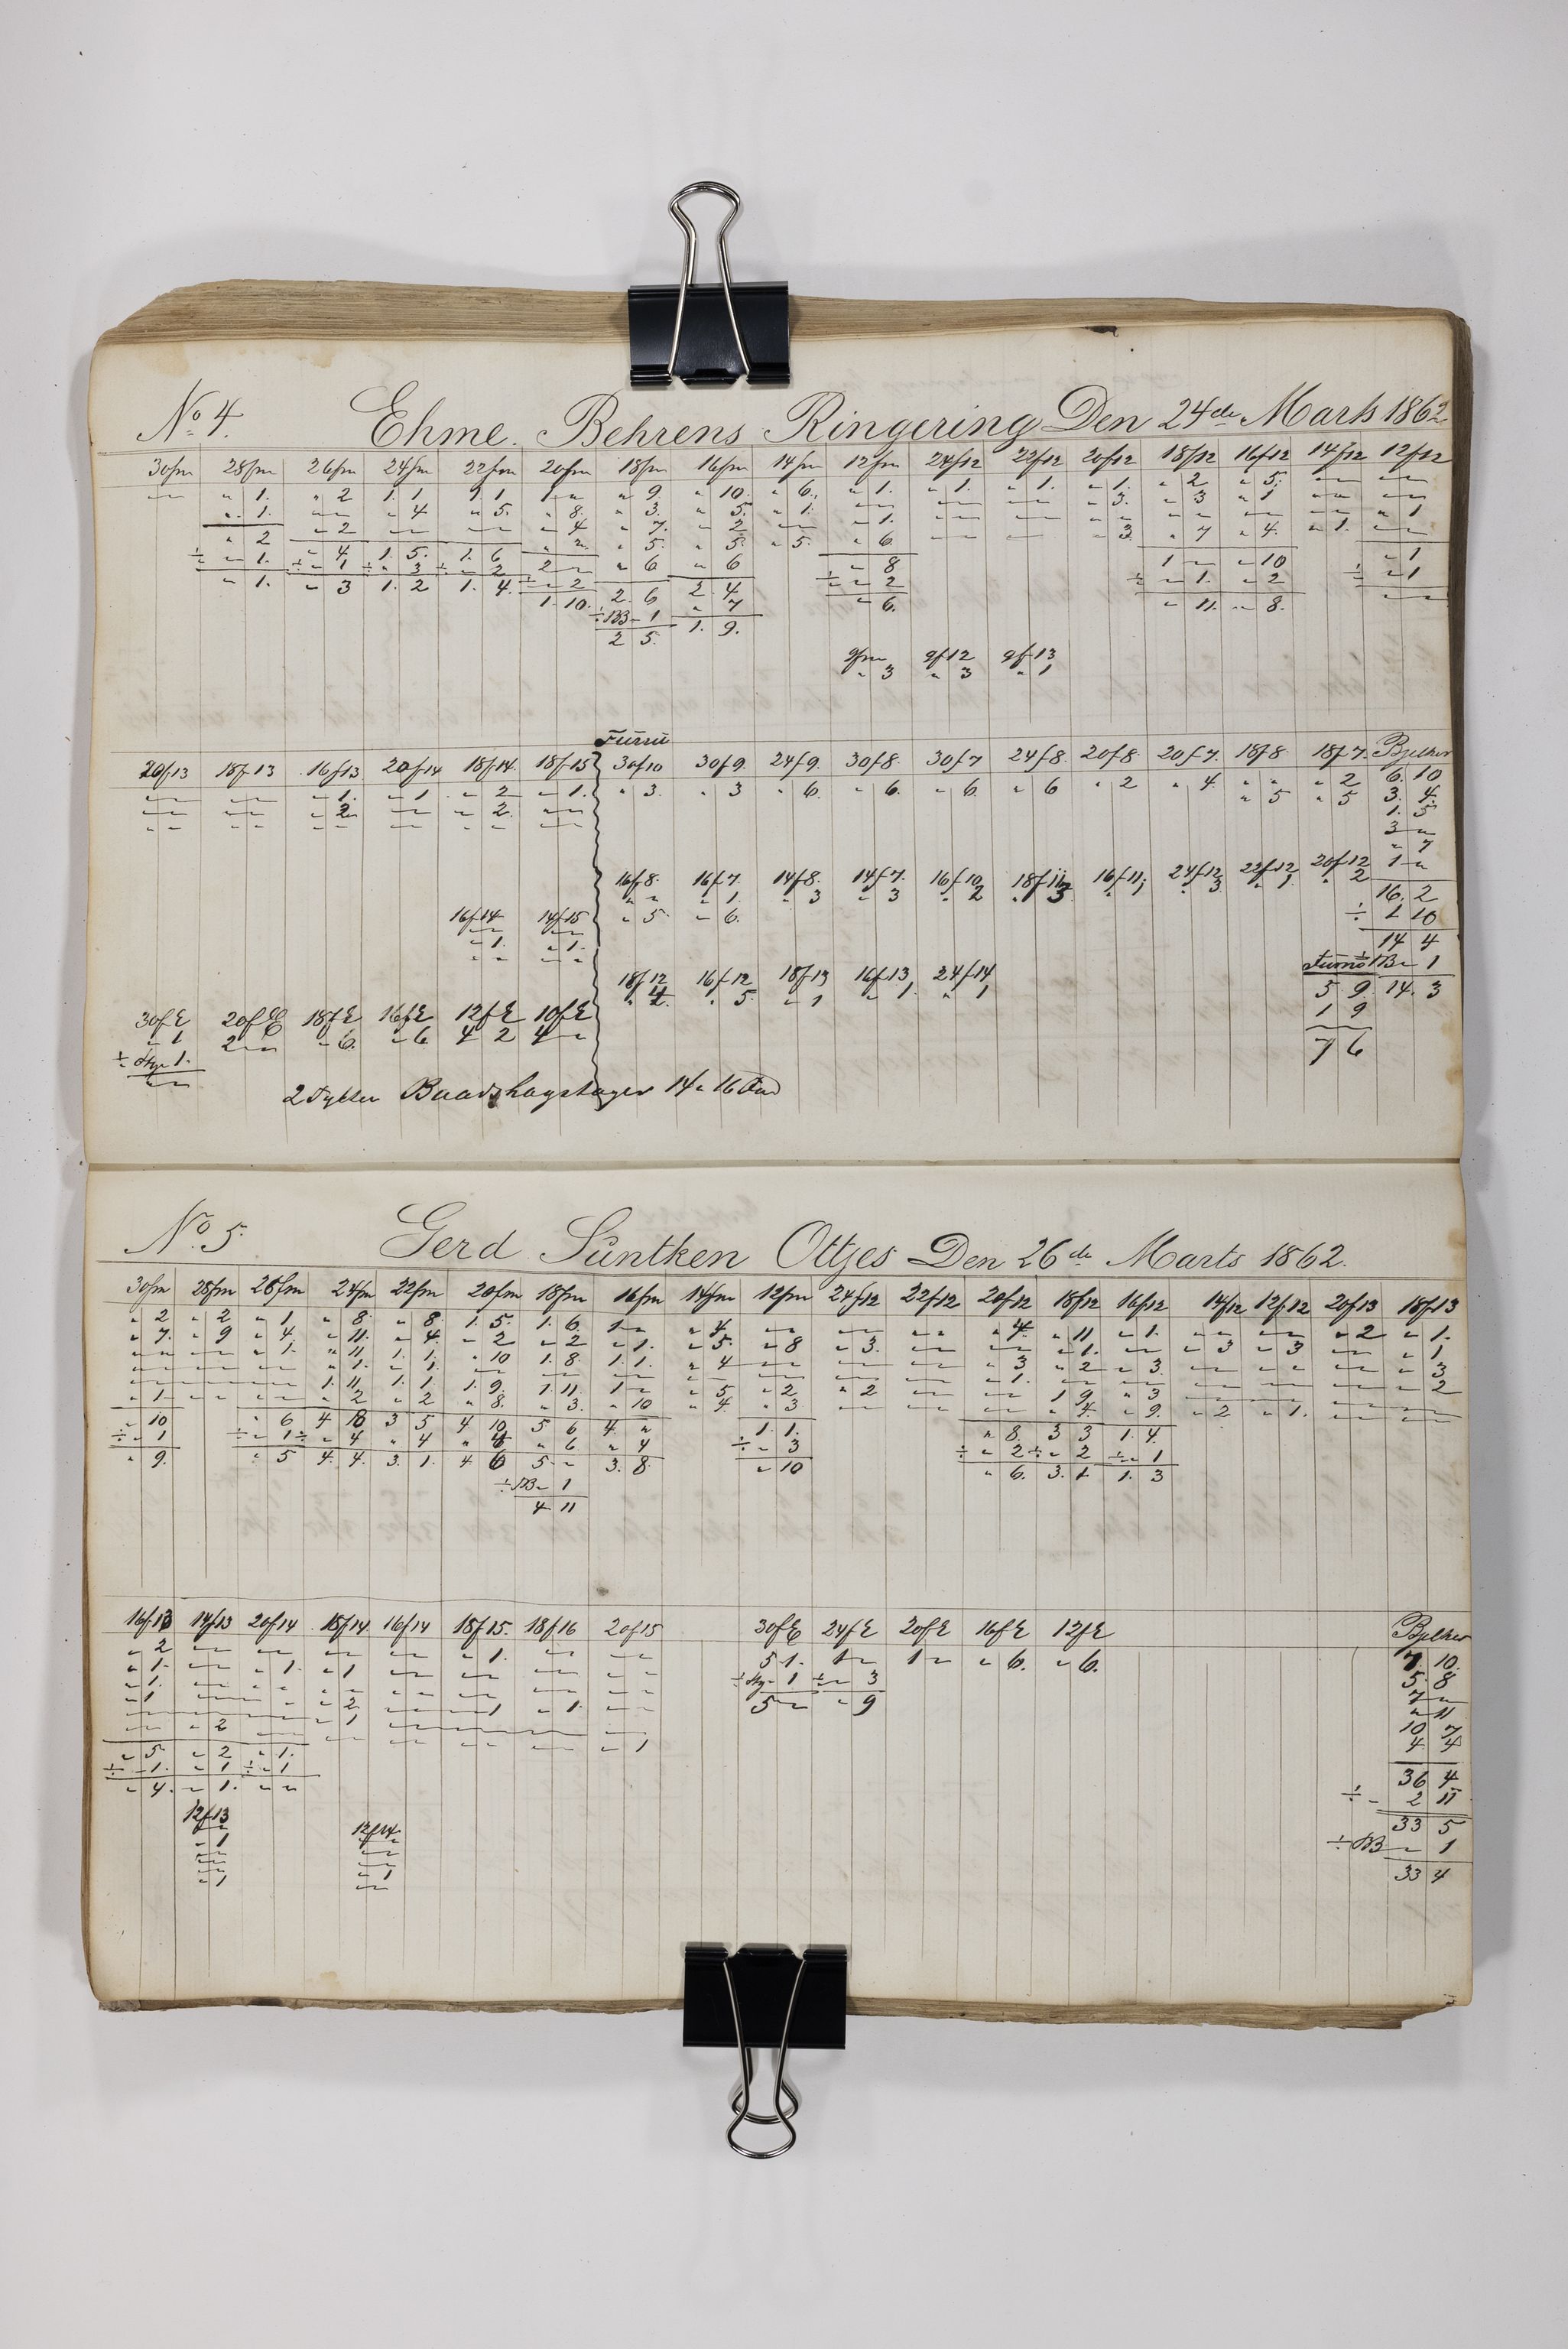 No 4. Ehme. Behrens Ringering Den 24de Marts 1862
30fm 28fm 26fm 24fm 22fm 20fm 18fm 16fm 14fm 12fm 24f12 22f12 20f12 18f12 16f12 14f12 12f12
— " 1. " 2 1. 1 1 1 " " 9. " 10. " 6. " 1. " 1. " 1. " 1. " 2 " 5. — —
" 1. — " 4 " 5. " 8. " 3. " 5. " 1. — — — " 3. " 3 " 1 — " 1
" 2 " 2 — — " 4 " 7. " 2 — " 1. — — " " — — — —
" " " 5. " 5. " 5. " 6 — — " 3. " 7 " 4. " 1. —
÷ " 1. " 4. 1. 5. 1. 6 2 — " 6 " 6 " 8 1 — " 10 " 1
÷ " 1 ÷ " 3 ÷ " 2 ÷ " 2 2. 4 ÷ " 2 ÷ " 1. " 2 ÷ " 1
" 1. " 3 1. 2 1. 4. 1. 10. 2 6 " 7 " 6. " 11. " 8. —
÷ B " 1 1. 9.
2 5.
9fm 9f12 9f13
" 3 " 3 " 1
Furru
20f13 18f13 16f13 20f14 18f14 18f15 30f10 30f9. 24f9. 30f8. 30f7 24f8. 20f8 20f7. 18f8 18f7. Bjelker
— — " 1. " 1 " 2 " 1. " 3. " 3 " 6. " 6. " 6. " 6 " 2 " 4. " " " 2 6. 10
— — " 2 — " 2. — " 5 " 5 3. 4.
" " " " " " — " " — 1. 5
3 "
" 7
1 "
16f8. 16f7. 14f8. 14f7. 16f10 18f11 16f11 24f12 22f12 20f12
" " " 1. " 3 " 3 " 2 " 3 " 1 " 3 " 1 " 2 16. 2
" 5. " 6. ÷ 1 10
16f14 14f15 14 4
— — ÷ B " 1
" 1. " 1. 14. 3
" " " "
18f12 16f12 18f13 16f13 24f14 5 9
" 4. " 5. " 1 " 1. " 1 1 9
7 6
30fE 20fE 18fE 16fE 12fE 10fE
" 1 2 — " 6. " 6. 4 2 4 "
÷ " 1.
—
2 Tylter Baadshagstager 14 " 16
No 5. Gerd Süntken Ottjes Den 26de Marts 1862.
30fm 28fm 26fm 24fm 22fm 20fm 18fm 16fm 14fm 12fm 24f12 22f12 20f12 18f12 16f12 14f12 12f12 20f13 18f13
" 2 " 2 " 1 " 8. " 8. 1. 5. 1. 6. 1 " " 4 — — " " " 4. " 11 " 1. " " — " 2 " 1.
" 7. " 9 " 4. " 11. " 4. " 2 " 2 " 1. " 5. " 8 " 3. — — " 1. — " 3 " 3 — " 1
" " — " 1. " 11 1. 1 " 10 1. 8. 1. 1. " 4 — — — " 3 " 2 " 3. — — — " 3
— — — " 1. " 1. — — — — — — — " 1. — — — — — " 2
— — — 1. 11. 1. 1. 1. 9. 1. 11. 1 " " 5 " 2 " 2 — — 1 9 " 3 — — — —
" 1. " " — " 2 " 2 " 8. " 3. " 10 " 4. " 3 — — — " 4. " 9. " 2. " 1. — —
" 10 " 6 4 18 3 5 4 10 5 6 4. " 1. 1. " 8. 3 3 1. 4.
÷ " 1 ÷ " 1 ÷ " 4 " 4 " 4 " 6 " 4 ÷ " 3 ÷ " 2 ÷ " 2 ÷ " 1
" 9. " 5 4. 4. 3. 1. 4. 6 5. " 3. 8. " 10 " 6. 3. 1 1. 3
÷ B " 1
4 11
16f13 14f13 20f14 18f14 16f14 18f15. 18f16 20f15 30fE 24fE 20fE 16fE 12fE Bjelker
" 2 — — — — " 1. — — 5 1. 1 — 1 — " 6. " 6. 7. 10.
" 1. — " 1. " 1 — — — " " ÷ " 1 ÷ " 3 5. 8
" 1. — " " " " — — — — 5 — " 9 7 —
" 1 — — " 2. — " 1 " 1. — " 11
— " 2 — " 1 — — — — 10 7
— — — — — " 1 4 4
" 5. " 2 " 1. 36 4
÷ " 1. " 1 ÷ " 1 ÷ " 2 11
" 4. " 1. " " 33 5
12f13 12f14 ÷ B " 1
" 1 33 4
" 1 " 1